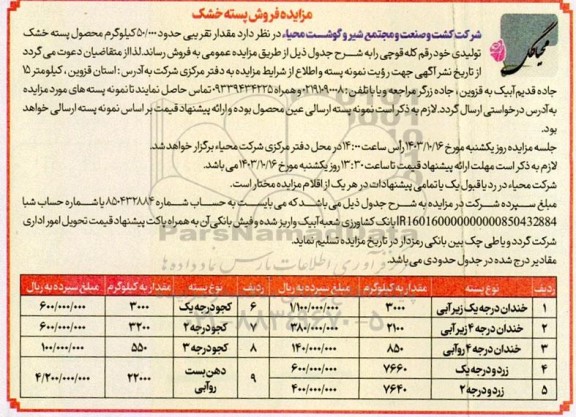 مزایده فروش پسته خشک
شرکت کشت و صنعت و مجتمع شیر و گوشت محیاء در نظر دارد مقدار تقریبی حدود ۵۰/۰۰۰ کیلوگرم محصول پسته خشک
تولیدی خود رقم کله قوچی را به شرح جدول ذیل از طریق مزایده عمومی به فروش رساند. لذا از متقاضیان دعوت می گردد
از تاریخ نشر آگهی جهت رؤیت نمونه پسته و اطلاع از شرایط مزایده به دفتر مرکزی شرکت به آدرس: استان قزوین، کیلومتر ۱۵
جاده قدیم آبیک به قزوین، جاده زرگر مراجعه و یا با تلفن: ۰۲۱۹۱۰۹۰۰۰۸ همراه ۰۹۳۳۹۴۳۴۲۲۵ تماس حاصل نمایند تا نمونه پسته های مورد مزایده
به آدرس درخواستی ارسال گردد. لازم به ذکر است نمونه پسته ارسالی عین محصول بوده و ارائه پیشنهاد قیمت بر اساس نمونه پسته ارسالی خواهد
بود.
جلسه مزایده روز یکشنبه مورخ ۱۴۰۳/۱۰/۱۶ رأس ساعت ۱۴:۰۰ در محل دفتر مرکزی شرکت محیاء برگزار خواهد شد.
لازم به ذکر است مهلت ارائه پیشنهاد قیمت تا ساعت ۱۳:۳۰ روز یکشنبه مورخ ۱۴۰۳/۱۰/۱۶ می باشد.
شرکت محیاء در رد یا قبول یک یا تمامی پیشنهادات در هر یک از اقلام مزایده مختار است.
مبلغ سپرده شرکت در مزایده به شرح جدول ذیل می باشد که می بایست به حساب شماره ۸۵۰۴۳۲۸۸۴ یا شماره حساب شبا
IR160160000000000850432884 بانک کشاورزی شعبه آبیک واریز شده و فیش بانکی آن به همراه پاکت پیشنهاد قیمت تحویل امور اداری
شرکت گردد و یا طی چک بین بانکی رمزدار در تاریخ مزایده تسلیم نماید.
مقادیر درج شده در جدول حدودی می باشد.
ردیف نوع پسته مقدار به کیلوگرم مبلغ سپرده به ریال ردیف نوع پسته مقدار به کیلوگرم مبلغ سپرده به ریال
۱ خندان درجه یک زیر آبی ۳۰۰۰ ۱/۱۰۰/۰۰۰/۰۰۰ ۶ کجو درجه یک ۳۰۰۰ ۶۰۰/۰۰۰/۰۰۰
۲ خندان درجه ۴ زیر آبی ۲۱۰۰ ۳۸۰/۰۰۰/۰۰۰ ۷ کجو درجه ۲ ۳۲۰۰ ۶۰۰/۰۰۰/۰۰۰
۳ خندان درجه ۴ روآبی ۸۵۰ ۱۴۰/۰۰۰/۰۰۰ ۸ کجو درجه ۳ ۵۵۰ ۱۰۰/۰۰۰/۰۰۰
۴ زرد و درجه یک ۷۶۶۰ ۶۰۰/۰۰۰/۰۰۰ ۹ دهن بست روآبی ۲۲۰۰۰ ۴/۲۰۰/۰۰۰/۰۰۰
۵ زرد و درجه ۲ ۷۶۴۰ ۴۰۰/۰۰۰/۰۰۰